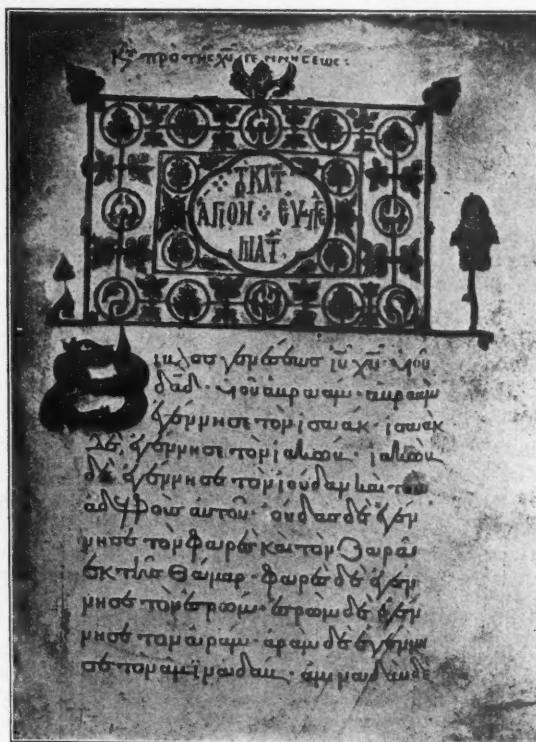 πρὸ τῆς χυ γεννήσεως:
ΚΑΤ
ἍΓΙΟΝ ΕΥΑΓΓΕ
ΜΑΤ
Βίβλος γενέσεως ἰυ χυ· υἱοῦ
δαδ· υἱοῦ ἀβραάμ· ἀβραὰμ
ἐγέννησε τὸν ἰσαάκ· ἰσαὰκ
δὲ ἐγέννησε τὸν ἰακώβ· ἰακὼβ
δὲ ἐγέννησε τὸν ἰούδαν καὶ τοὺς
ἀδελφοὺς αὐτοῦ· ἰούδας δὲ ἐγέν
νησε τὸν φαρὲς καὶ τὸν ζαρὰ
ἐκ τῆς θάμαρ· φαρὲς δὲ ἐγέν
νησε τὸν ἐσρώμ· ἐσρὼμ δὲ ἐγέν
νησε τὸν ἀράμ· ἀρὰμ δὲ ἐγέννη
σε τὸν ἀμϊναδάμ· ἀμιναδὰμ δὲ